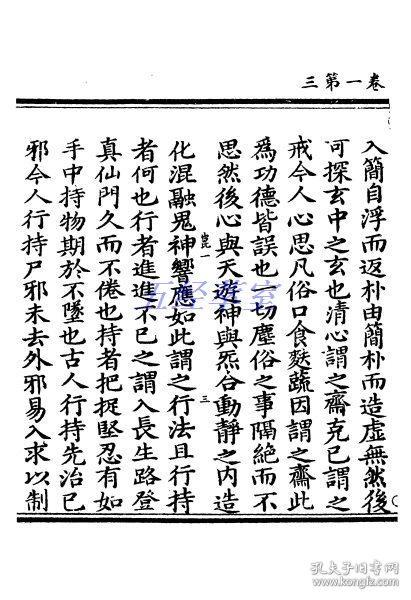 卷一第三
入簡自浮而返朴由簡朴而造虛無然後
可探玄中之玄也清心謂之齋克已謂之
戒今人心思凡俗口食麩蔬因謂之齋此
為功德皆誤也一切塵俗之事隔絕而不
思然後心與天遊神與炁合動靜之內造
崑一
三
化混融鬼神響應如此謂之行法且行持
者何也行者進進不已之謂入長生路登
真仙門久而不倦也持者把捉堅忍有如
手中持物期於不墜也古人行持先治已
邪今人行持尸邪未去外邪易入求以制
五经普室
孔夫子旧書网